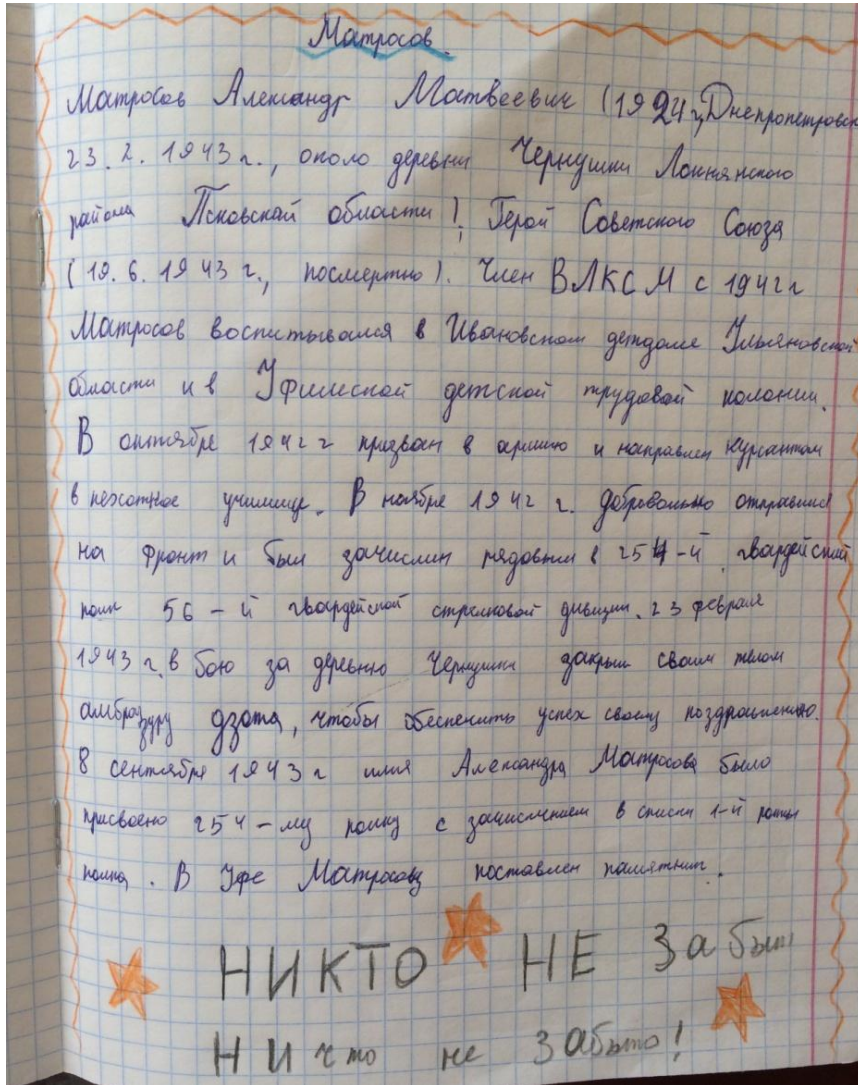 Матросов.
Матросов Александр Матвеевич (1924 г, Днепропетровск
23.2.1943 г., около деревни Чернушки Локнянского
района Псковской области!, Герой Советского Союза
(19.6.1943 г., посмертно). Член ВЛКСМ с 1942 г
Матросов воспитывался в Ивановском детдоме Ульяновской
области и в Уфимской детской трудовой колонии.
В октябре 1942 г призван в армию и направлен курсантом
в пехотное училище. В ноябре 1942 г. добровольно отправился
на фронт и был зачислин рядовым в 254-й гвардейский
полк 56-й гвардейской стрелковой дивизии. 23 февраля
1943 г. в бою за деревню Чернушки закрыл своим телом
амбразуру дзота, чтобы обеспечить успех своему поздраılению.
8 сентября 1943 г имя Александра Матросова было
присвоено 254-му полку с зачислением в списки 1-й роты
полка. В Уфе Матросову поставлен памятник.
НИКТО НЕ Забыт
НИчто не забыто!